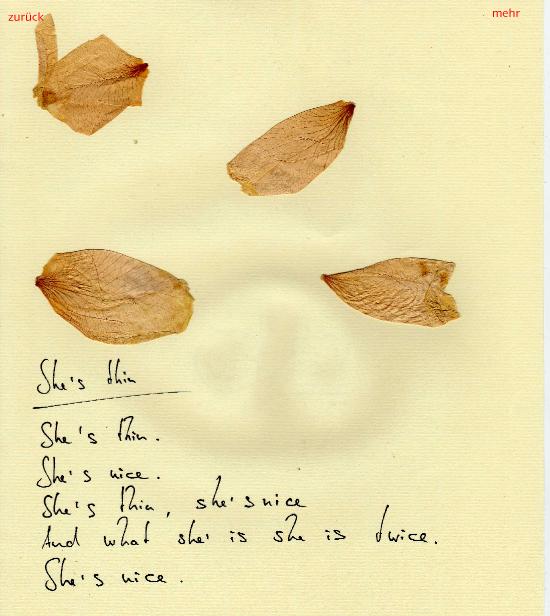 zurück
mehr
She's thin
She's thin.
She's nice.
She's thin, she's nice
And what she is she is twice.
She's nice.